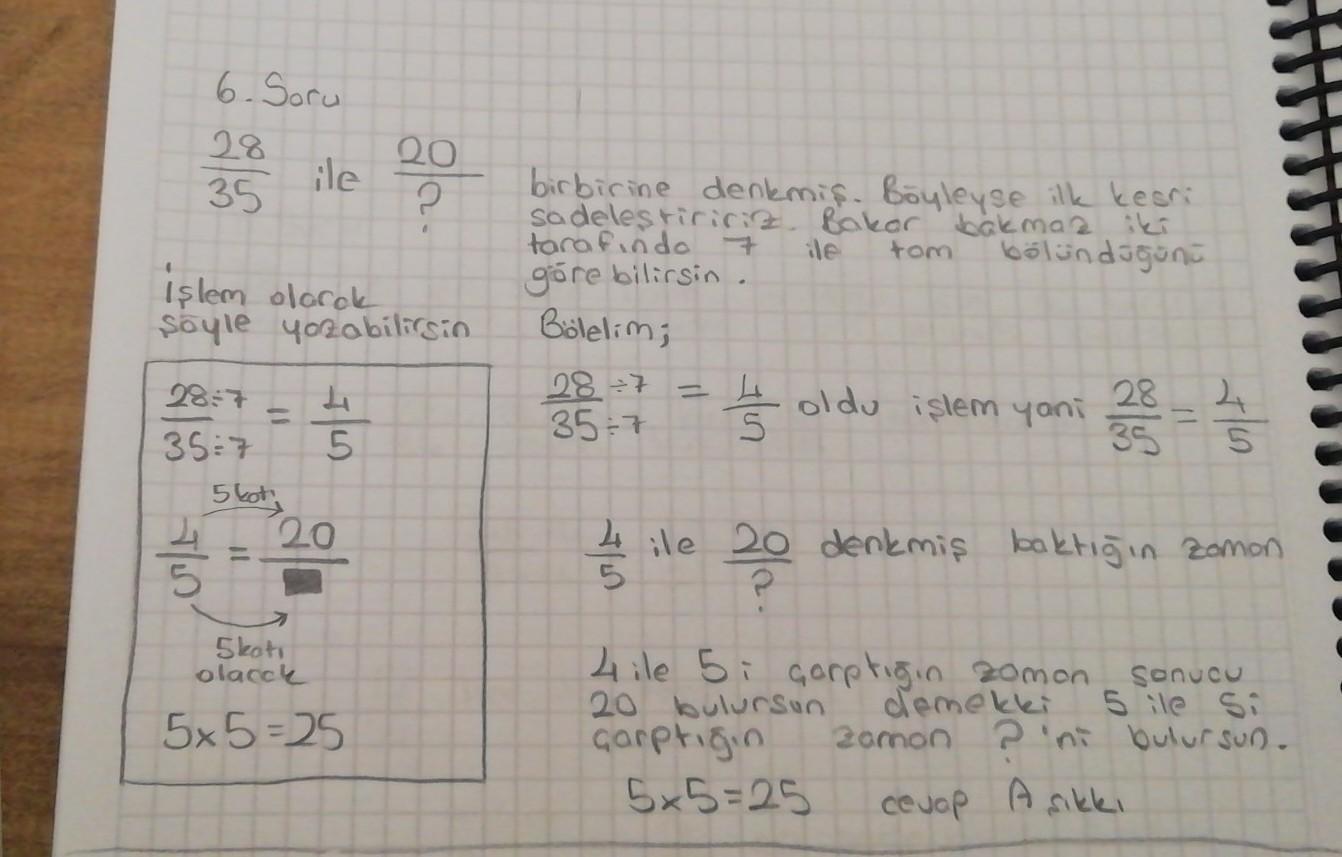 6. Soru
28/35 ile 20/?
birbirine denkmiş. Böyleyse ilk kesri
sadeleştiririz. Bakar bakmaz iki
tarafında 7 ile tam bölündüğünü
görebilirsin.
İşlem olarak
şöyle yazabilirsin
28÷7/35÷7 = 4/5
5 katı
4/5 = 20/■
5 katı
olacak
5x5=25
Bölelim;
28÷7/35÷7 = 4/5 oldu işlem yani 28/35 = 4/5
4/5 ile 20/? denkmiş baktığın zaman
4 ile 5 i çarptığın zaman sonucu
20 bulursun demekki 5 ile 5i
çarptığın zaman ? 'ni bulursun.
5x5=25 cevap A şıkkı